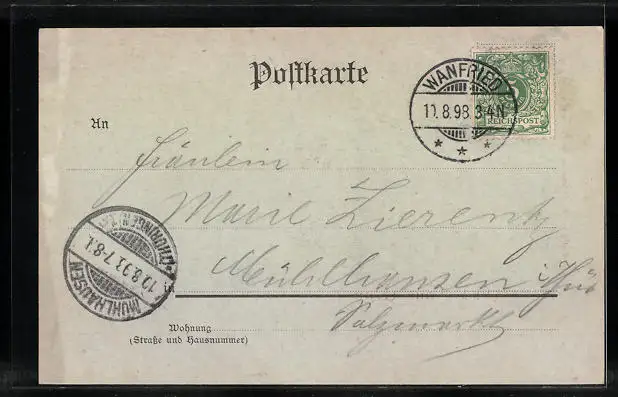 Postkarte
WANFRIED
10.8.98.3-4N
REICHSPOST
An
Fräulein
Marie Zierentz
Mühlhausen i/Thür
Salzmarkt
MÜHLHAUSEN
(THÜRINGEN)
7-8
Wohnung
(Straße und Hausnummer)